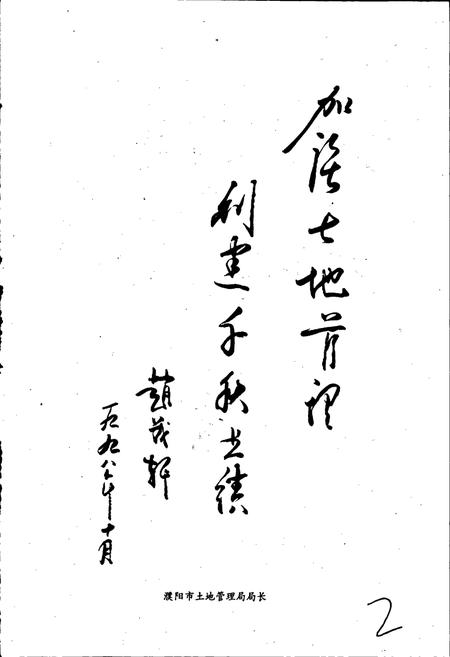 加强土地管理
创建千秋业绩
赵茂轩
一九九八年十月
濮阳市土地管理局局长
2